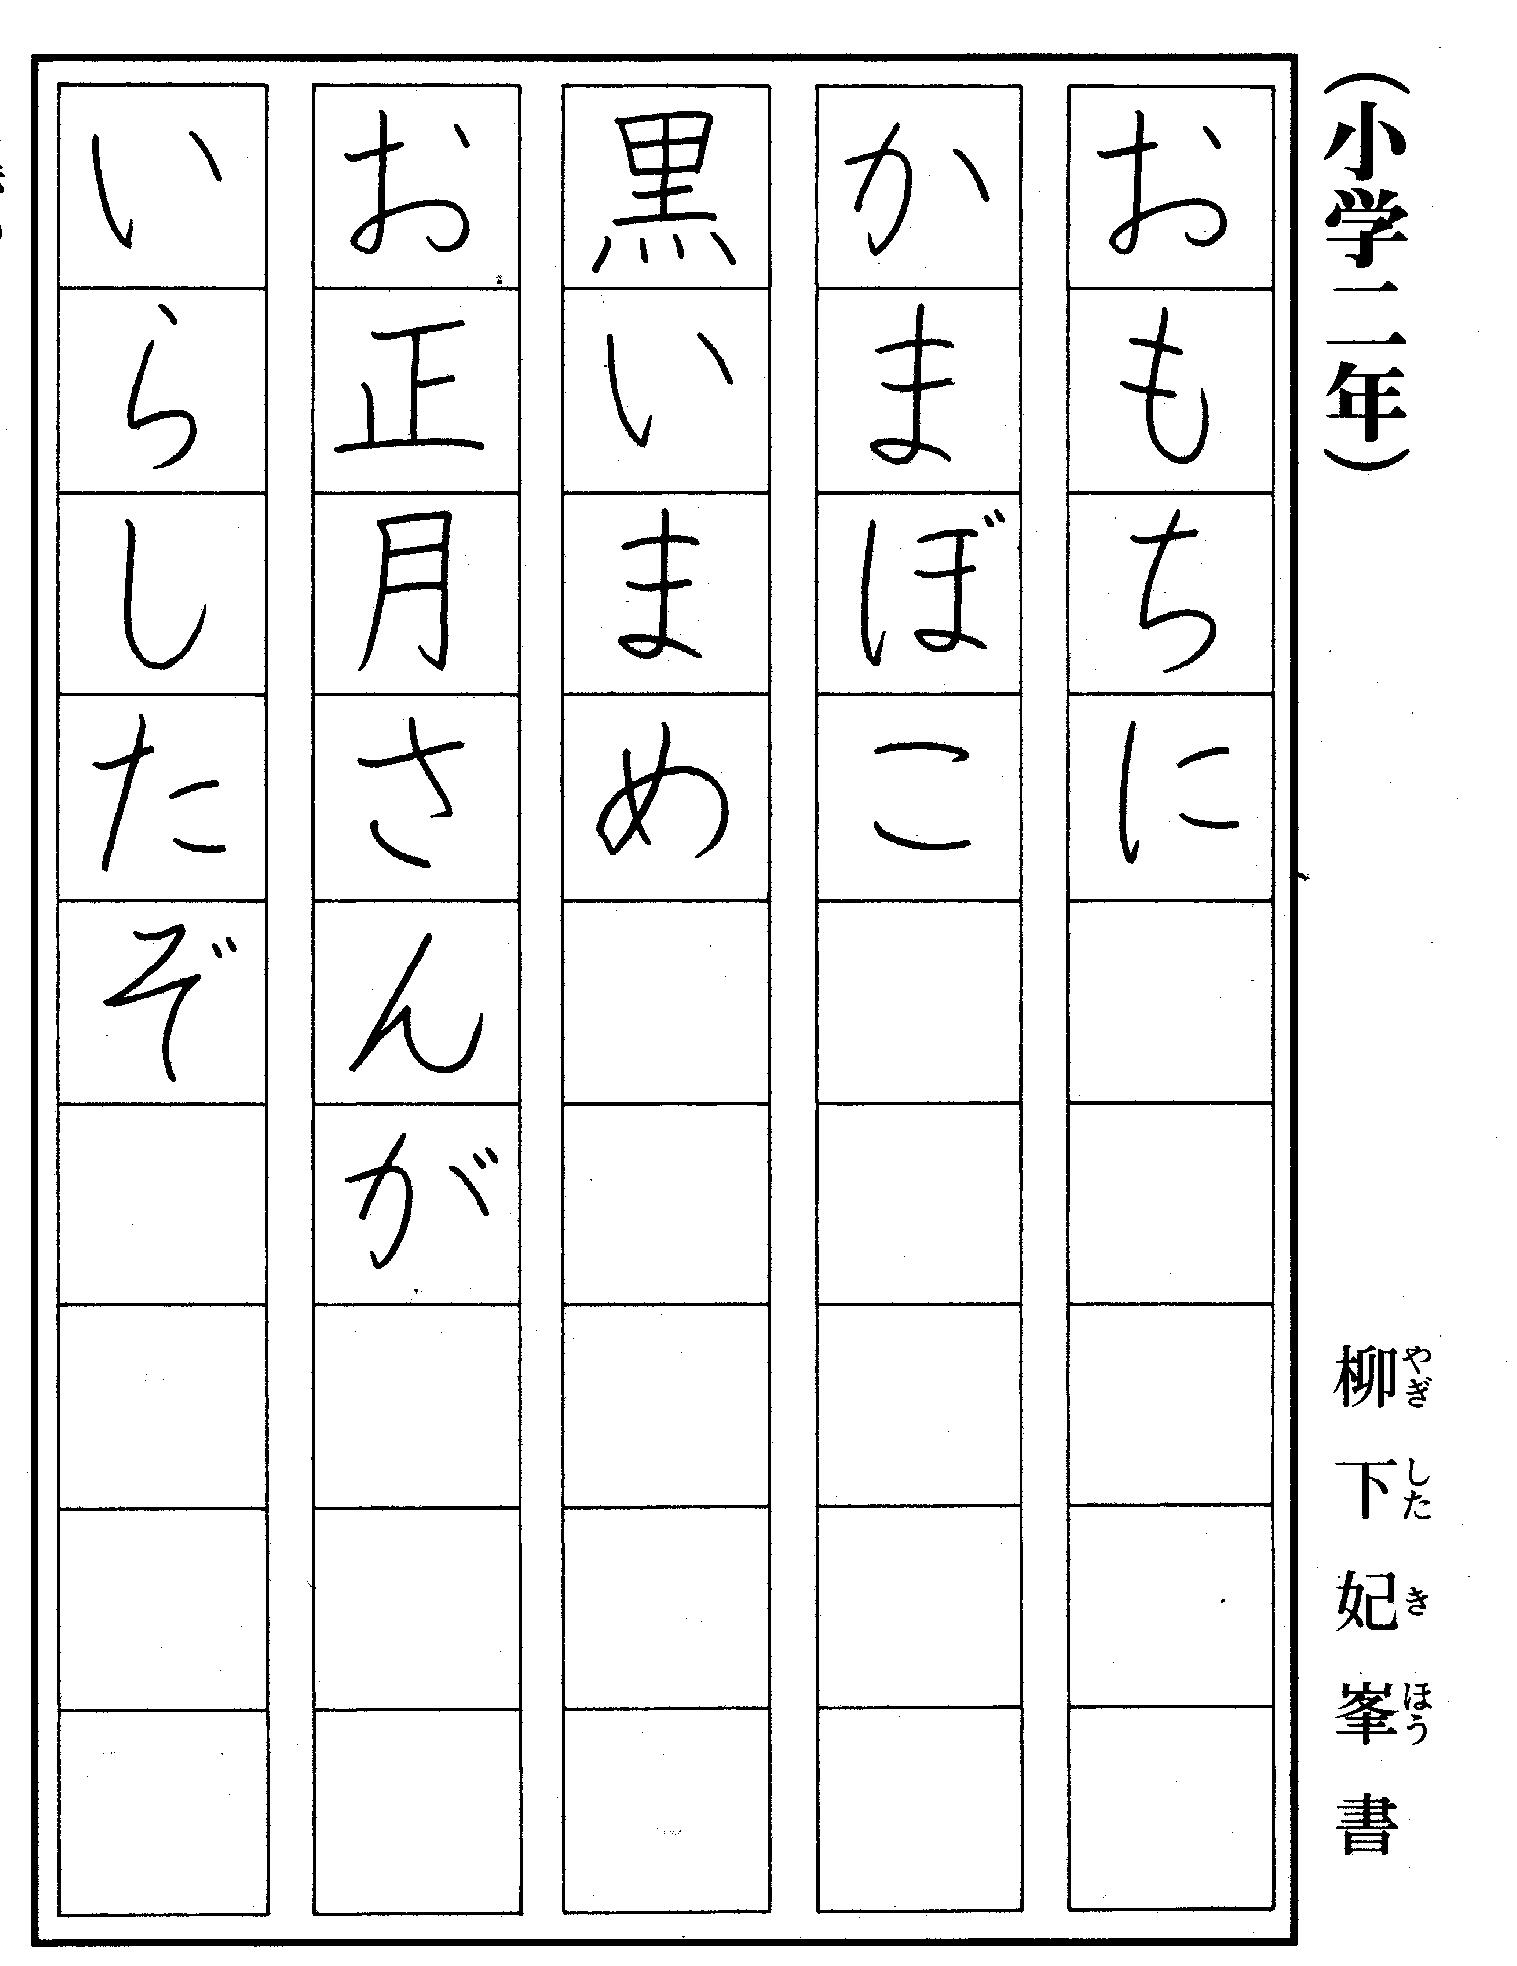 （小学二年）
柳下妃峯書
やぎしたきほう
おもちに
かまぼこ
黒いまめ
お正月さんが
いらしたぞ